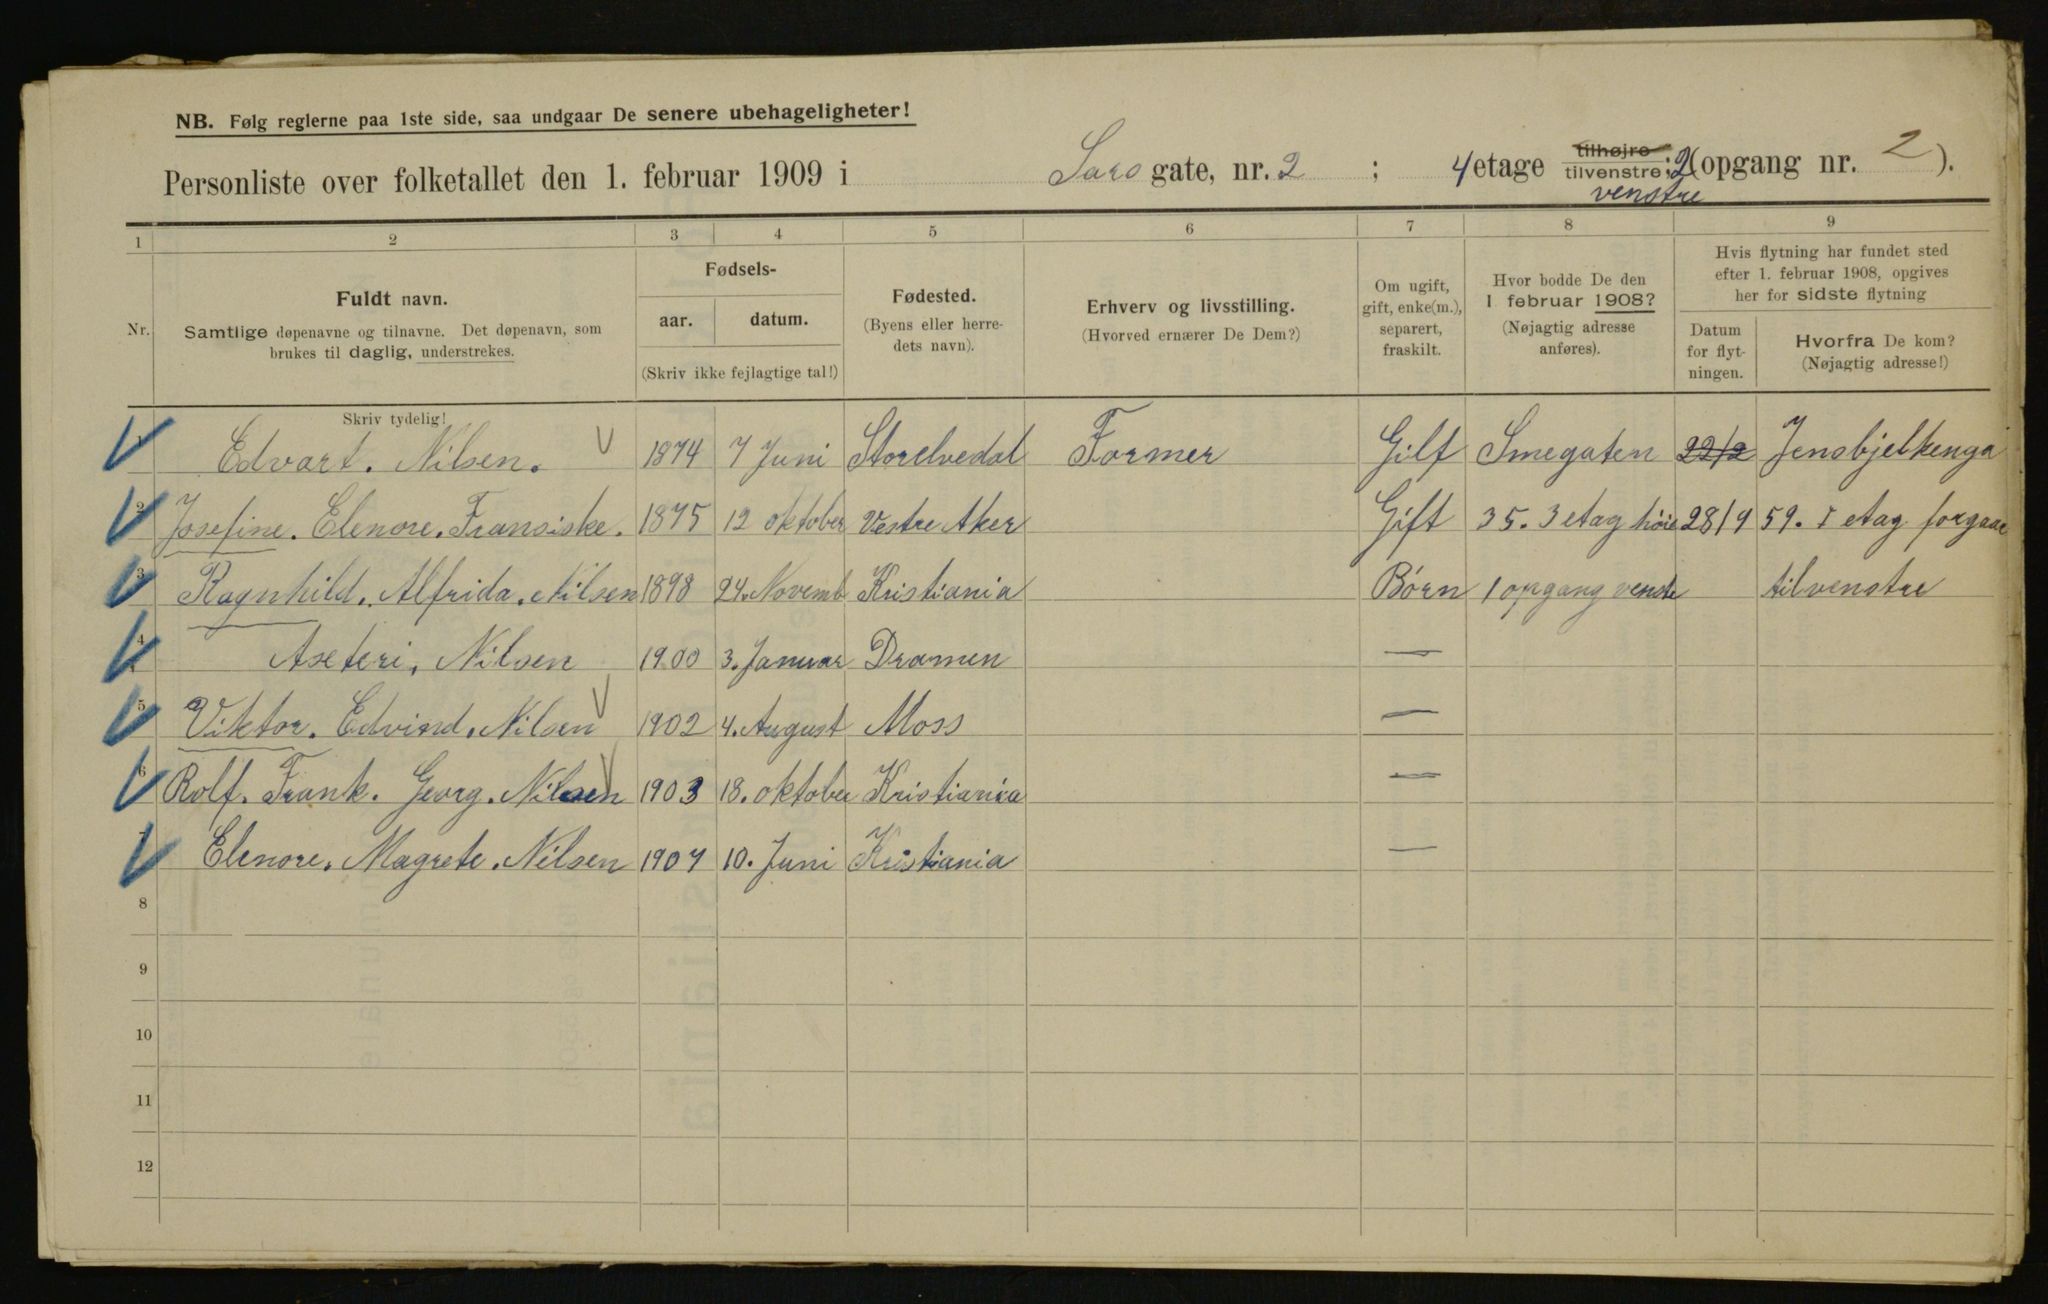 NB. Følg reglerne paa 1ste side, saa undgaar De senere ubehageligheter!
Personliste over folketallet den 1. februar 1909 i Sars gate, nr. 2 ; 4 etage tilhøjre tilvenstre ; 2 (opgang nr. 2 ).
venstre
1 2 3 4 5 6 7 8 9
Nr.
Fuldt navn.
Samtlige døpenavne og tilnavne. Det døpenavn, som
brukes til daglig, understrekes.
Fødsels-
aar. datum.
(Skriv ikke fejlagtige tal!)
Fødested.
(Byens eller herre-
dets navn).
Erhverv og livsstilling.
(Hvorved ernærer De Dem?)
Om ugift,
gift, enke(m.),
separert,
fraskilt.
Hvor bodde De den
1 februar 1908?
(Nøjagtig adresse
anføres).
Hvis flytning har fundet sted
efter 1. februar 1908, opgives
her for sidste flytning
Datum
for flyt-
ningen.
Hvorfra De kom?
(Nøjagtig adresse!)
Skriv tydelig!
1 Edvart. Nilsen. 1874 7 Juni Storelvedal Former Gilf Smegaten 22/2 Jensbjelkenga
2 Josefine. Elenore. Fransiske. 1875 12 oktober Vestre Aker Gift 35. 3 etag høie 28/9 59. I etag forgaar
3 Ragnhild. Alfrida. Nilsen 1898 24. Novemb Kristiania Børn 1 opgang venste tilvenstre
4 Aseteri, Nilsen 1900 3. Januar Dramen —
5 Viktor. Edvind. Nilsen 1902 4. August Moss —
6 Rolf. Frank. Georg. Nilsen 1903 18. oktober Kristiania —
7 Elenore. Magrete. Nilsen 1907 10. Juni Kristiania —
8
9
10
11
12